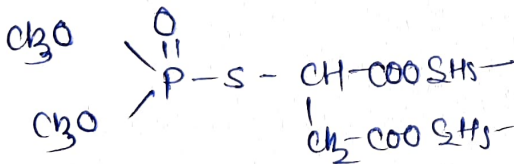 CH3O O
P-S-CH-COOC2H5-
CH3O CH2-COOC2H5-